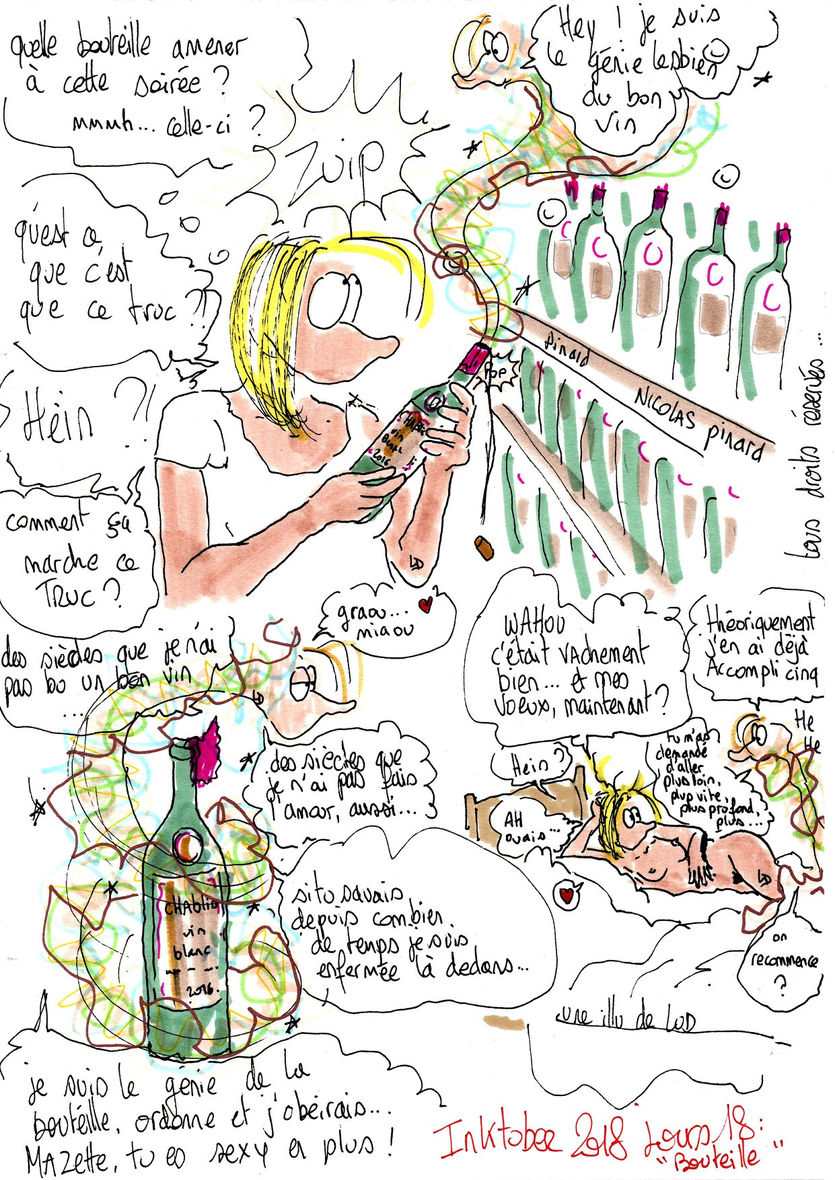 quelle bouteille amener
à cette soirée ?
mmmh... celle-ci ?
Zuip
Hey ! je suis
le génie lesbien
du bon
vin
qu'est ce
que c'est
que ce truc ?!
Hein ?!
comment ça
marche ce
TRUC ?
POP
CHABLIS
vin
BLANC
2016
pinard
NICOLAS pinard
tous droits réservés...
des siècles que je n'ai
pas bu un bon vin
...
graou...
miaou
des siècles que
je n'ai pas fais
l'amour, aussi...
si tu savais
depuis combien
de temps je suis
enfermée là dedans...
CHAblis
vin
blanc
2016.
je suis le génie de la
bouteille, ordonne et j'obeirais...
MAZette, tu es sexy en plus !
WAHOU
c'était vachement
bien... et mes
voeux, maintenant ?
théoriquement
j'en ai déjà
Accompli cinq
He
He
tu m'as
demandé
d'aller
plus loin,
plus vite,
plus profond,
plus...
Hein ?
AH
ouais...
on
recommence
?
une illu de LOD
Inktober 2018 Jours 18:
"Bouteille"